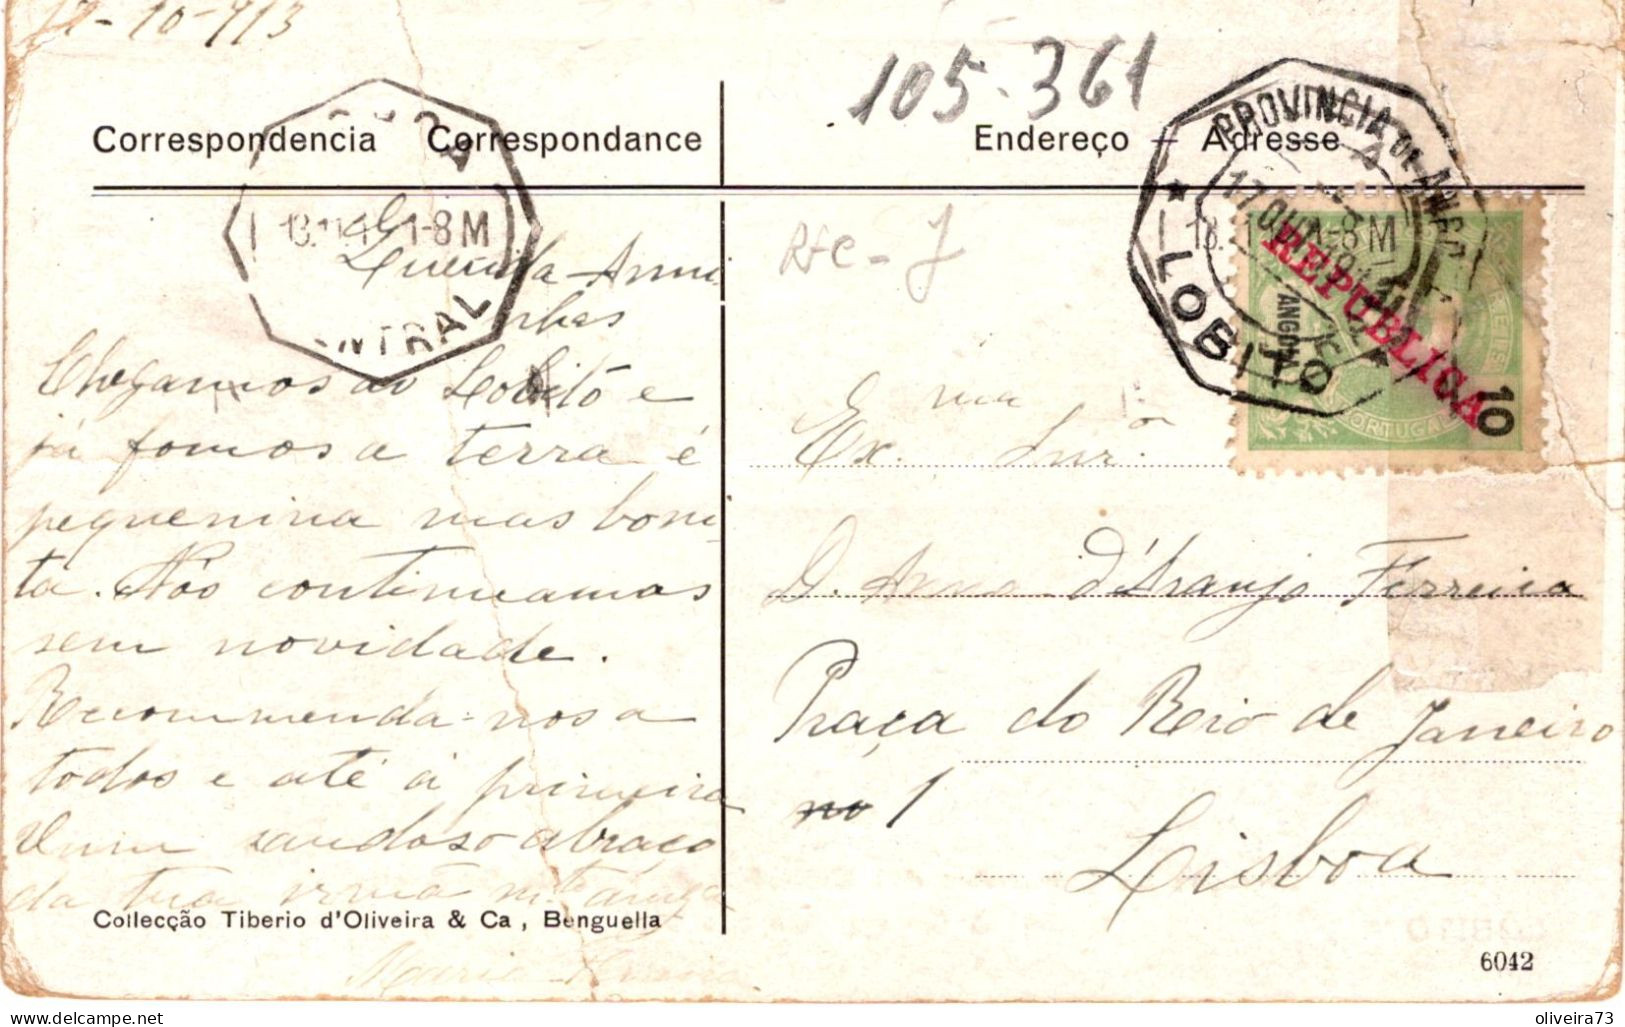 17-10-913
105-361
Correspondencia Correspondance
Endereço — Adresse
PROVINCIA DE ANGOLA
LOBITO
CENTRAL
1-8M
REPUBLICA
10
Querida Anni
nhas
Chegamos ao Lobito e
já fomos a terra é
pequenina mas boni
ta. Nós continuamos
sem novidade.
Recommenda-nos a
todos e até á primeira
Um saudoso abraço
da tua irmã m.to amiga
Maria
Ex.ma Snr.a
D. Anna d'Araujo Ferreira
Praça do Rio de Janeiro
no 1
Lisboa
Collecção Tiberio d'Oliveira & Ca, Benguella
6042
oliveira73